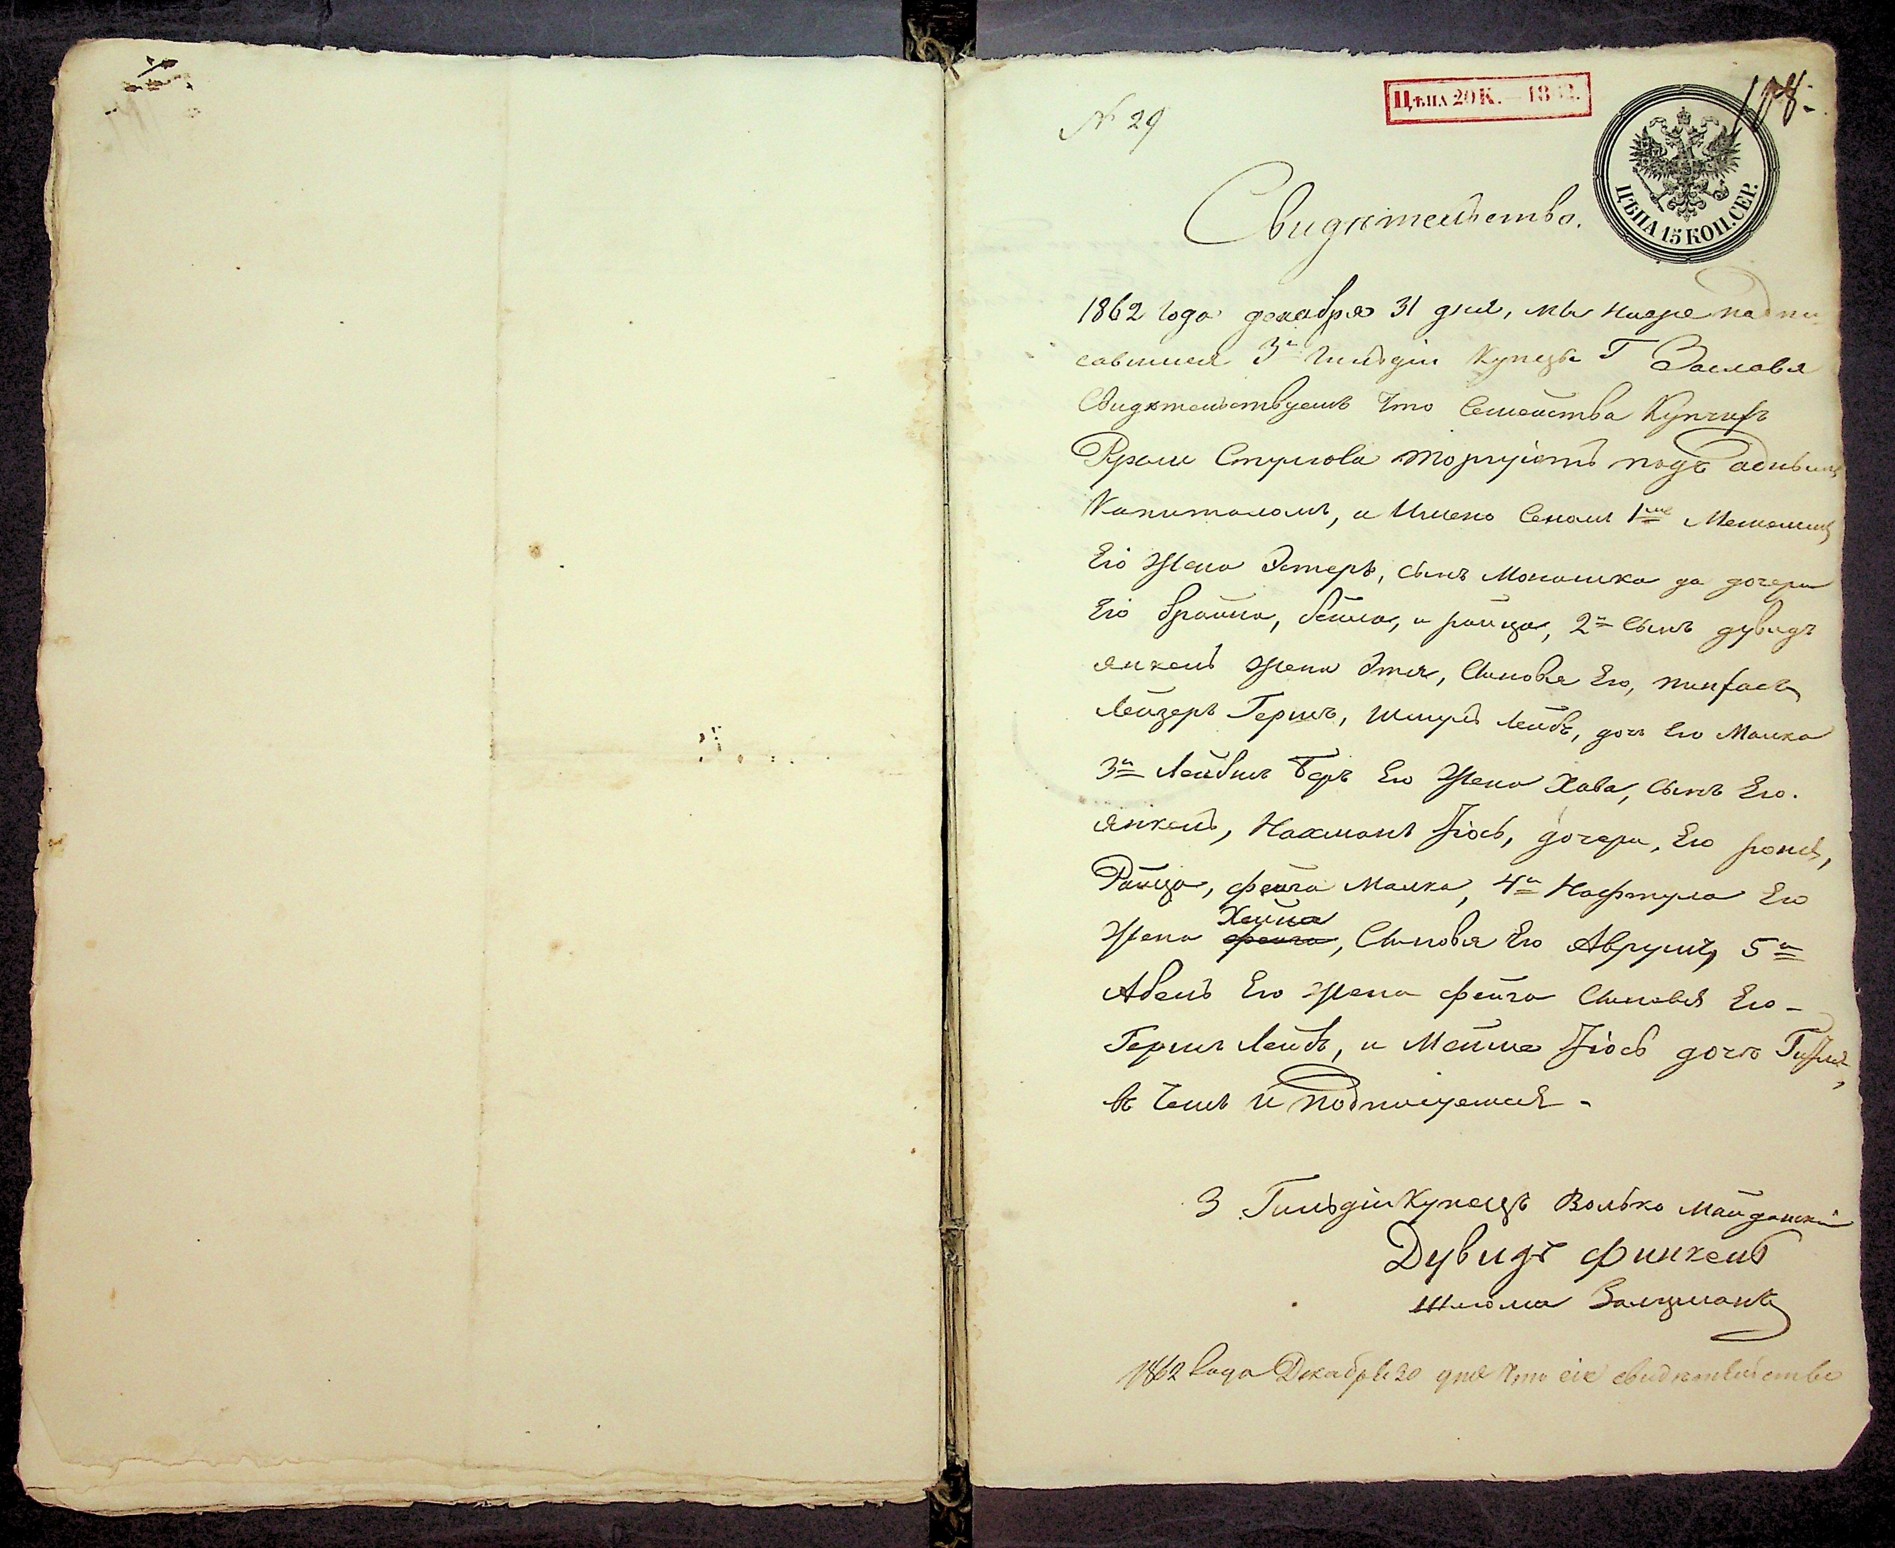 № 29
Цѣна 20 К. — 1862.
178.
ЦѢНА 15 КОП. СЕР.
Свидѣтельство.
1862 года декабря 31 дня, мы ниже подпи-
савшиеся 3й Гильдіи Купцы Г Заславя
Свидѣтельствуемъ что Семейства Купчихъ
Рухли торгуіетъ подъ аднымъ
Капиталомъ, а Имено 1ый
Его Жена Эстеръ, сынъ Монашка да дочери
Его брайна, бейла, и райца, 2й Сынъ дувидъ
янкель Жена Этя, Сыновя Его, пинхасъ
Лейзеръ Гершъ, Шмуль Лейбъ, доч Его Малка
3й Лейбишъ Беръ Его Жена Хава, Сынъ Его.
янкель, Нахманъ Іось, дочери, Его
Райца, фейга Малка, 4й Нафтула Его
Жена Хайна фейга, Сыновя Его Аврумъ, 5й
Абель Его Жена фейга Сыновя Его -
Гершъ Лейбъ, и Мейше Іось дочь
въ чемъ и подписуемся -
3 Гильдіи Купецъ Волько Майданскій
Дувидъ Финкель
Шлома Залцманъ
1862 Года Декабря 20 дня Что сіе свидѣтельство